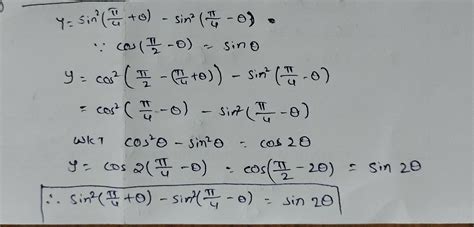 y = sin²(π/4 + θ) - sin²(π/4 - θ).
∵ cos(π/2 - θ) = sinθ
y = cos²(π/2 - (π/4 + θ)) - sin²(π/4 - θ)
= cos²(π/4 - θ) - sin²(π/4 - θ)
WKT cos²θ - sin²θ = cos 2θ
y = cos 2(π/4 - θ) = cos(π/2 - 2θ) = sin 2θ
∴ sin²(π/4 + θ) - sin²(π/4 - θ) = sin 2θ